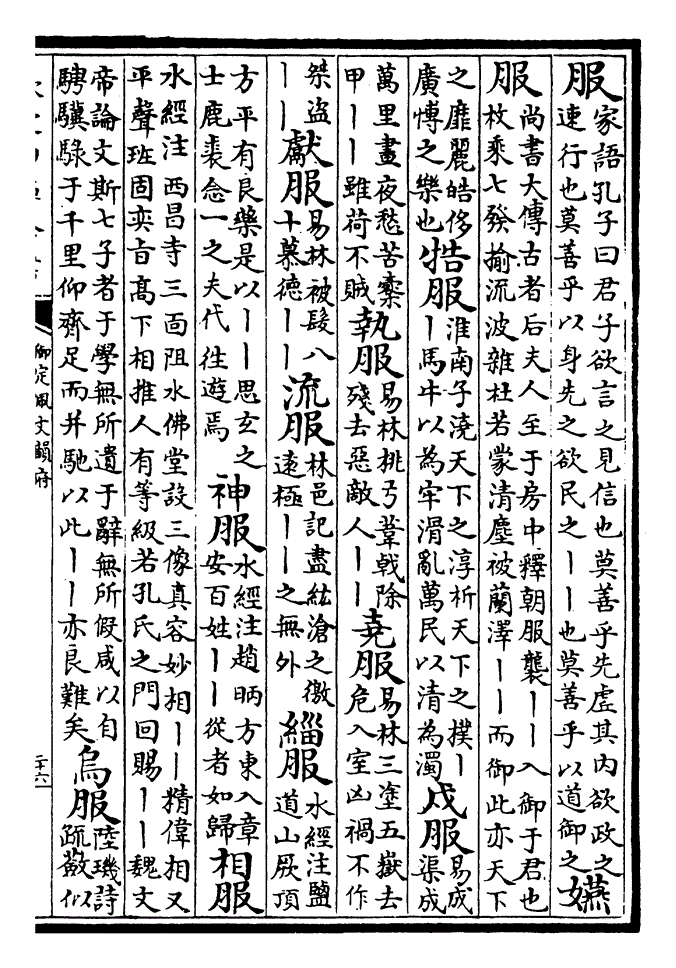 服家語孔子曰君子欲言之見信也莫善乎先虛其內欲政之
速行也莫善乎以身先之欲民之丨丨也莫善乎以道御之嬿
服尚書大傳古者后夫人至于房中釋朝服襲丨丨入御于君也
枚乘七發揄流波雜杜若蒙清塵被蘭澤丨丨而御此亦天下
之靡麗皓侈
廣愽之樂也牿服淮南子澆天下之淳析天下之樸丨
丨馬牛以為牢滑亂萬民以清為濁戍服易
渠成
萬里晝夜愁苦橐
甲丨丨雖荷不賊執服易林桃弓葦戟除
殘去惡敵人丨丨堯服易林三塗五嶽去
危入室凶禍不作
桀盜
丨丨獻服易林被髮八
十慕德丨丨流服林邑記盡紘滄之徼
遠極丨丨之無外緇服水經注鹽
道山厥頂
方平有良藥是以丨丨思玄之
士鹿裘念一之夫代往遊焉神服水經注趙昞方東入章
安百姓丨丨從者如歸相服
水經注西昌寺三面阻水佛堂設三像真容妙相丨丨精偉相又
平聲班固奕旨髙下相推人有等級若孔氏之門回賜丨丨魏文
帝論文斯七子者于學無所遺于辭無所假咸以自
騁驥騄于千里仰齊足而并馳以此丨丨亦良難矣烏服陸璣詩
疏蔱似
御定佩文韻府
二十六